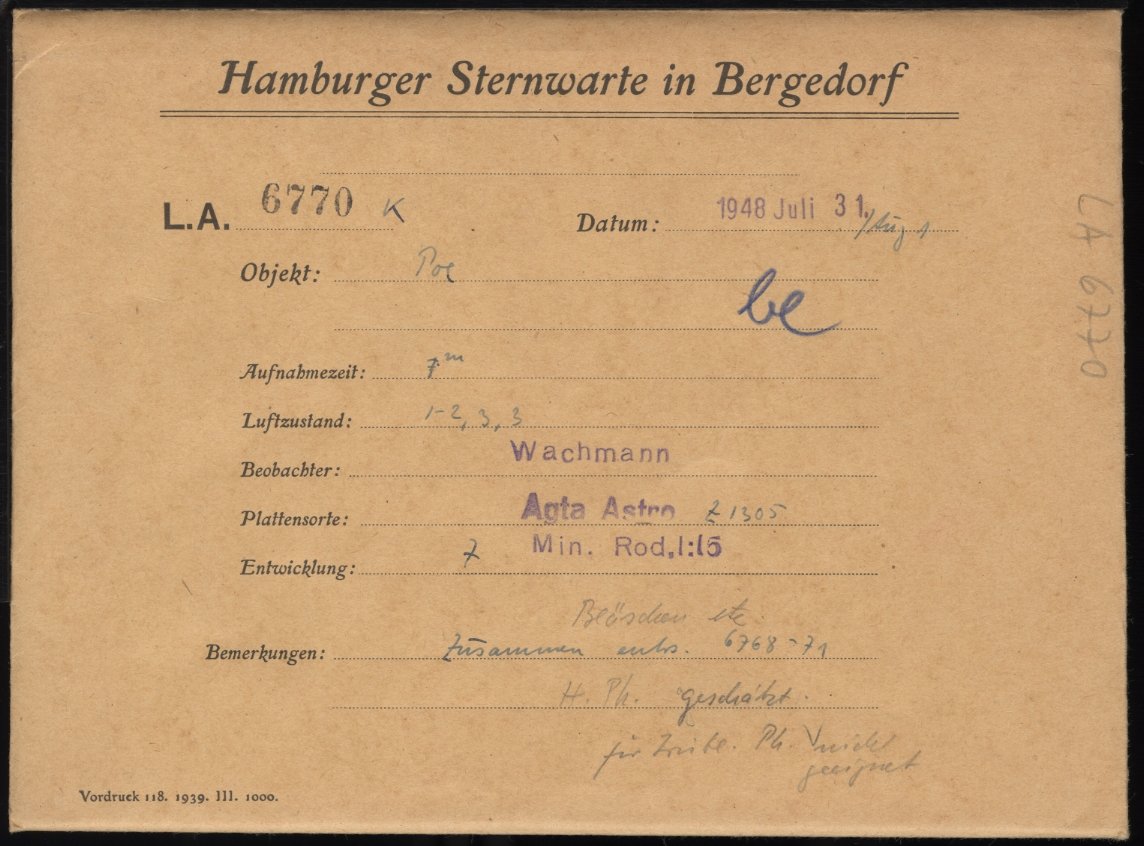 Hamburger Sternwarte in Bergedorf
L.A. 6770 K
Datum: 1948 Juli 31./Aug 1
Objekt: Pol
be
Aufnahmezeit: 7m
Luftzustand: 1-2, 3, 3
Beobachter: Wachmann
Plattensorte: Agfa Astro Z 1305
Entwicklung: 7 Min. Rod. 1:15
Bläschen etc.
Bemerkungen: Zusammen entw. 6768-71
H. Ph. geschätzt.
für Ph. nicht
geeignet
Vordruck 118. 1939. III. 1000.
LA 6770